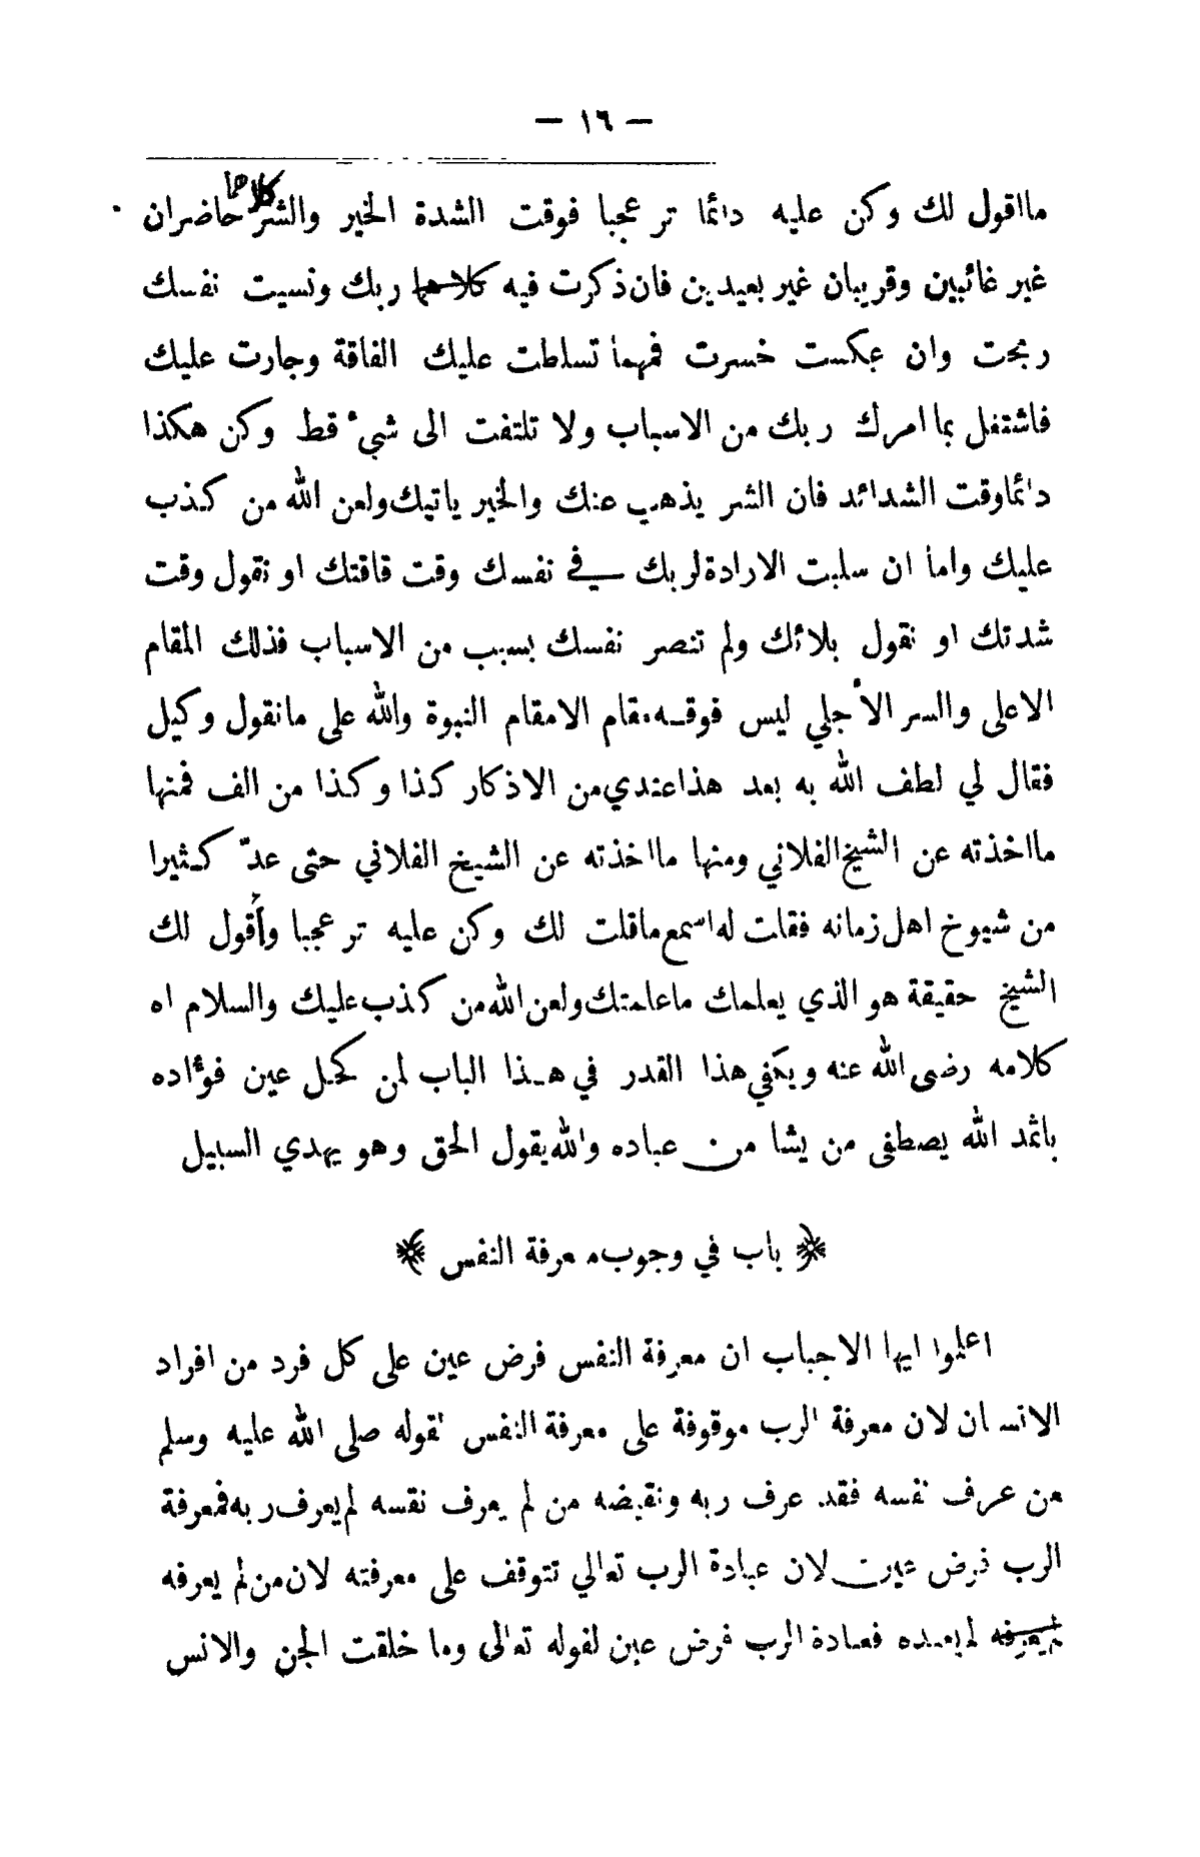 — ١٦ —
مااقول لك وكن عليه دائما تر عجبا فوقت الشدة الخير والشر كلاهما حاضران
غير غائبين وقريبان غير بعيدين فان ذكرت فيه كلاهما ربك ونسيت نفسك
ربحت وان عكست خسرت فمهما تسلطت عليك الفاقة وجارت عليك
فاشتغل بما امرك ربك من الاسباب ولا تلتفت الى شيء قط وكن هكذا
دائما وقت الشدائد فان الشر يذهب عنك والخير ياتيك ولعن الله من كذب
عليك واما ان سلبت الارادة لربك في نفسك وقت قاقتك او نقول وقت
شدتك او نقول بلائك ولم تنصر نفسك بسبب من الاسباب فذلك المقام
الاعلى والسر الأجلي ليس فوقه مقام الا مقام النبوة والله على مانقول وكيل
فقال لي لطف الله به بعد هذا عندي من الاذكار كذا وكذا من الف فمنها
مااخذته عن الشيخ الفلاني ومنها مااخذته عن الشيخ الفلاني حتى عدّ كثيرا
من شيوخ اهل زمانه فقلت له اسمع ماقلت لك وكن عليه تر عجبا وأقول لك
الشيخ حقيقة هو الذي يعلمك ماعلمتك ولعن الله من كذب عليك والسلام اه
كلامه رضى الله عنه ويكفي هذا القدر في هذا الباب لمن كحل عين فوءاده
باثمد الله يصطفى من يشا من عباده والله يقول الحق وهو يهدي السبيل
﴿ باب في وجوب معرفة النفس ﴾
اعلموا ايها الاحباب ان معرفة النفس فرض عين على كل فرد من افراد
الانسان لان معرفة الرب موقوفة على معرفة النفس لقوله صلى الله عليه وسلم
من عرف نفسه فقد عرف ربه ونقيضه من لم يعرف نفسه لم يعرف ربه فمعرفة
الرب فرض عين لان عبادة الرب تعالي تتوقف على معرفته لان من لم يعرفه
لم يعرفه لم يعبده فعبادة الرب فرض عين لقوله تعالى وما خلقت الجن والانس